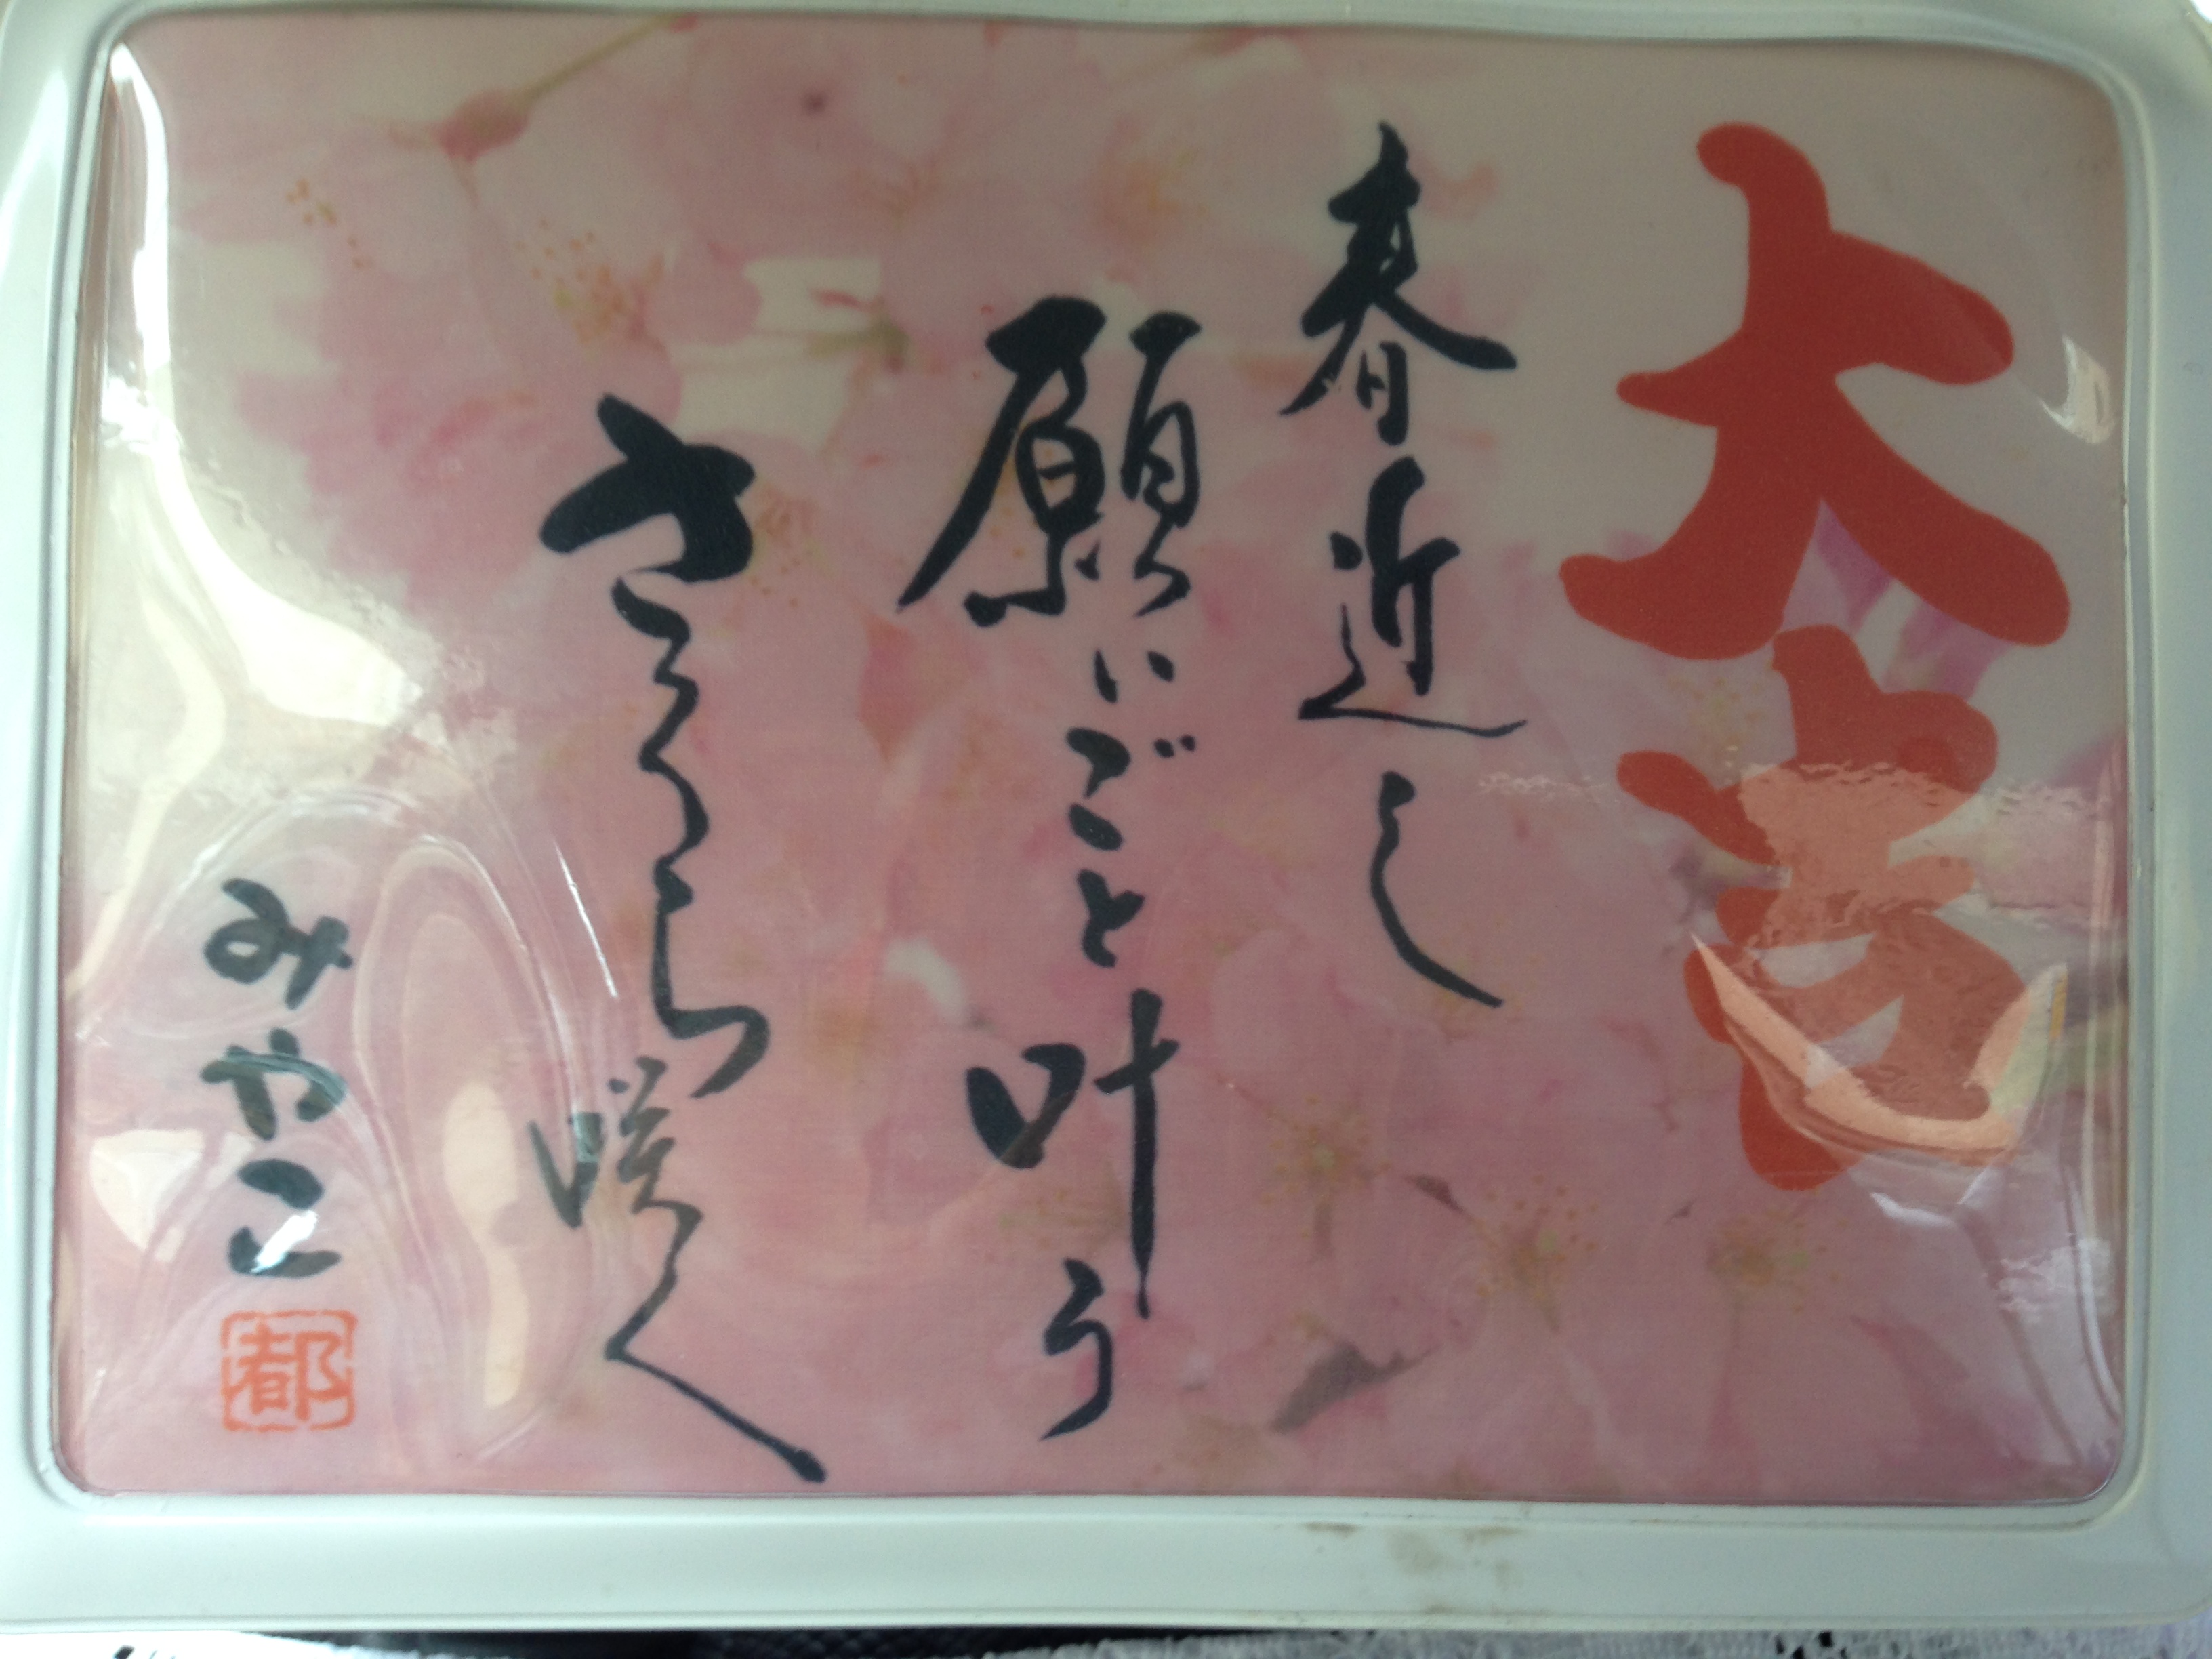 大吉
春近し
願いごと叶う
さくら咲く
みやこ
都